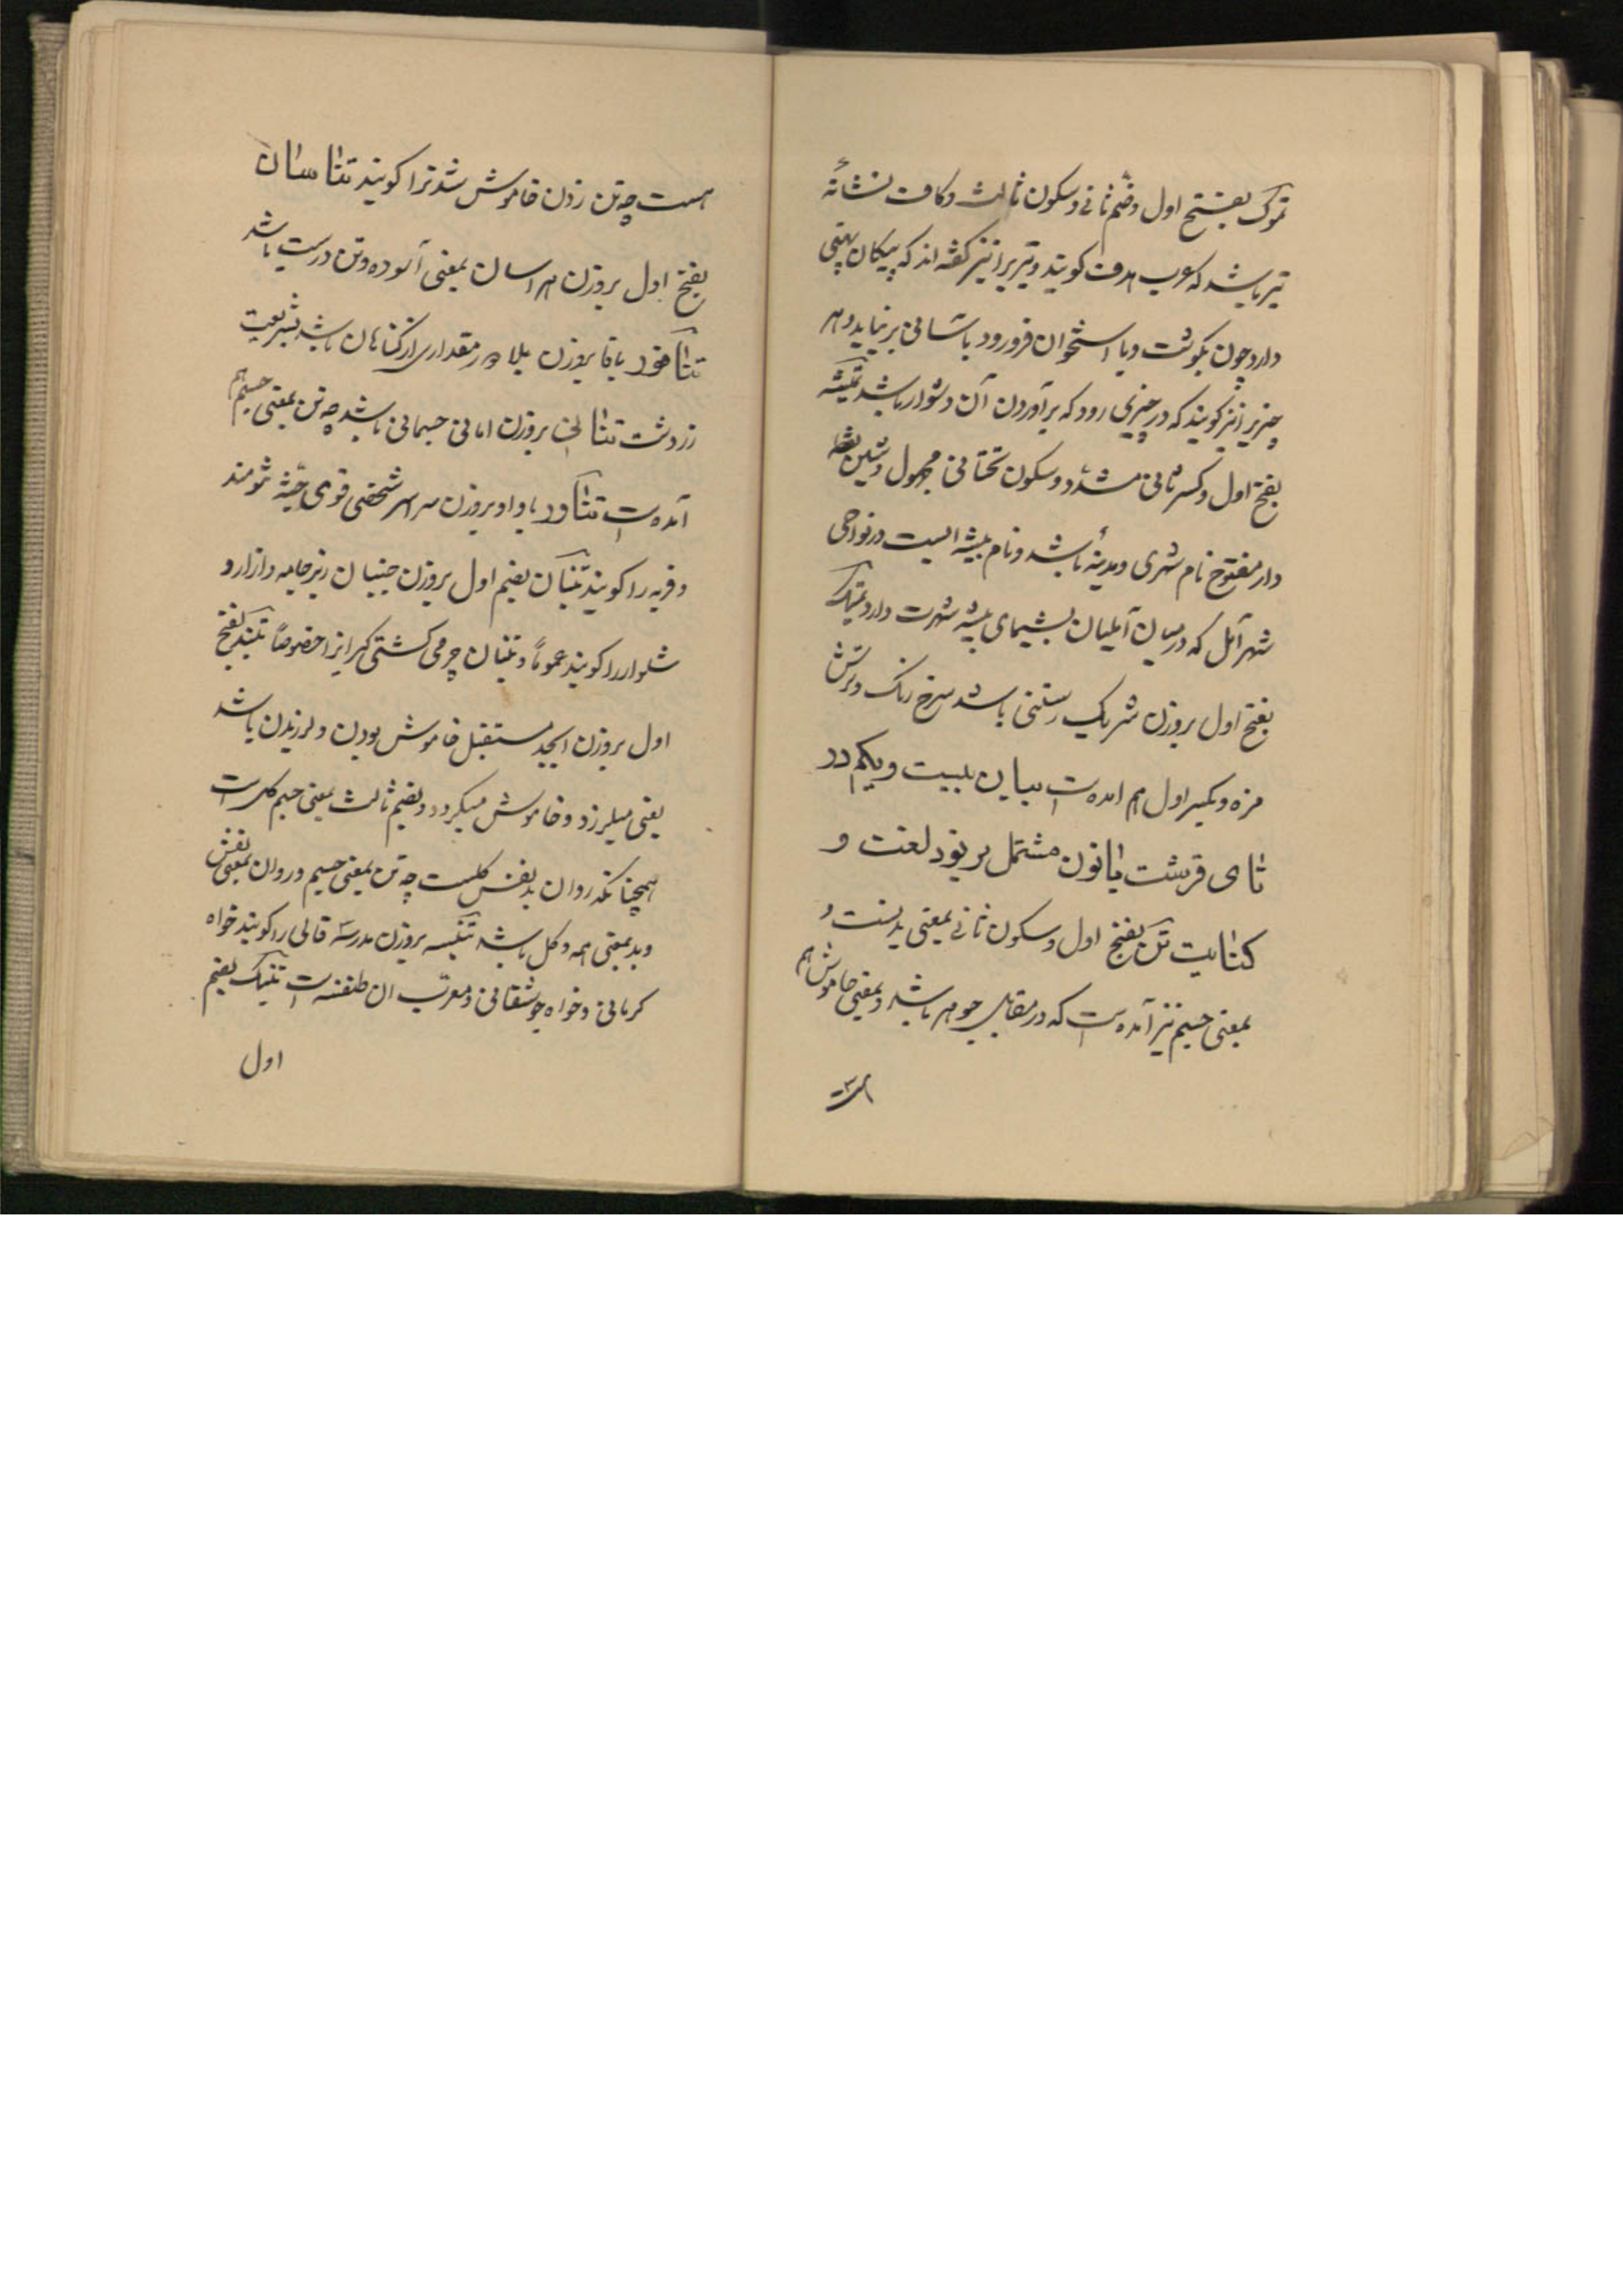 تموک بفتح اول وضم ثانی و سکون ثالث و کاف نشانهٔ
تیر باشد که عرب هدف کویند و تیریرا نیز کفته اند که پیکان پهنی
دارد چون بکوشت و یا استخوان فرو رود باسانی بر نیاید و هر
چیزیرا نیز کویند که در چیزی رود که برآوردن آن دشوار باشد تمیشه
بفتح اول و کسر ثانی مشدد و سکون تحتانی مجهول و شین نقطه
دار مفتوح نام شهری و مدینهٔ باشد و نام بیشه ایست در نواحی
شهر آمل که درمیان آملیان بشیمای بیشه شهرت دارد تمیک
بفتح اول بروزن شریک رستنی باشد سرخ رنک و ترش
مزه و بکسر اول هم امده است بیان بیست و یکم در
تای قرشت با نون مشتمل بر نود لغت و
کنایت تن بفتح اول و سکون ثانی بمعنی بدنست و
بمعنی جسم نیز آمده است که در مقابل جوهر باشد و بمعنی خاموش هم
هست
هست چه تن زدن خاموش شدنرا کویند تناسان
بفتح اول بروزن هراسان بمعنی آسوده و تن درست باشد
تنافور با فا بروزن بلادر مقداری از کناهان باشد بشریعت
زردشت تنانی بروزن امانی جسمانی باشد چه تن بمعنی جسم هم
آمده است تناور با واو بروزن سراسر شخصی قوی جثه تنومند
و فربه را کویند تنبان بضم اول بروزن جنبان زیرجامه و ازار و
شلوار را کویند عموماً و تنبان چرمی کشتی کیرانرا خصوصاً تنبد بفتح
اول بروزن ابجد مستقبل خاموش بودن و لرزیدن باشد
یعنی میلرزد و خاموش میکردد و بضم ثالث بمعنی جسم کل است
همچنانکه روان بد نفس کلست چه تن بمعنی جسم و روان بمعنی نفس
و بد بمعنی همه و کل باشد تنبسه بروزن مدرسه قالی را کویند خواه
کرمانی و خواه جوشقانی و معرب ان طنفسه است تنبک بضم
اول